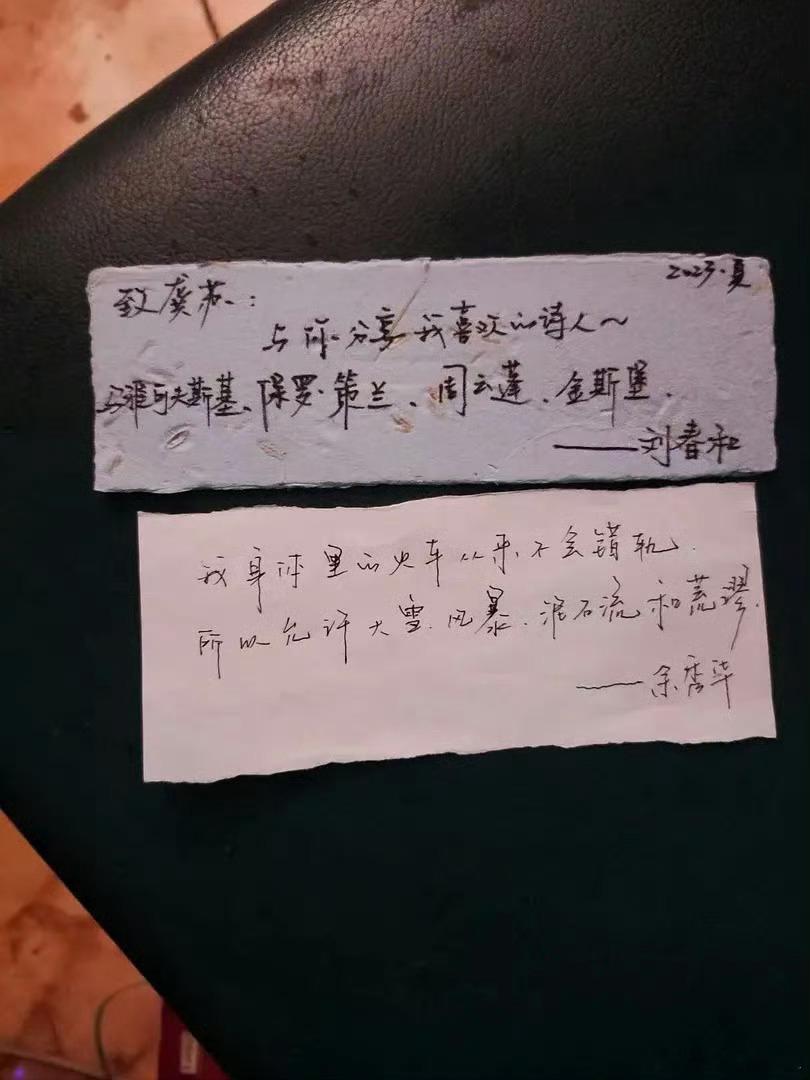 2023·夏
致虞苏:
与你分享我喜欢的诗人~
马雅可夫斯基、保罗·策兰、周云蓬、金斯堡.
——刘春和
我身体里的火车从来不会错轨
所以允许大雪.风暴.泥石流和荒谬.
——余秀华